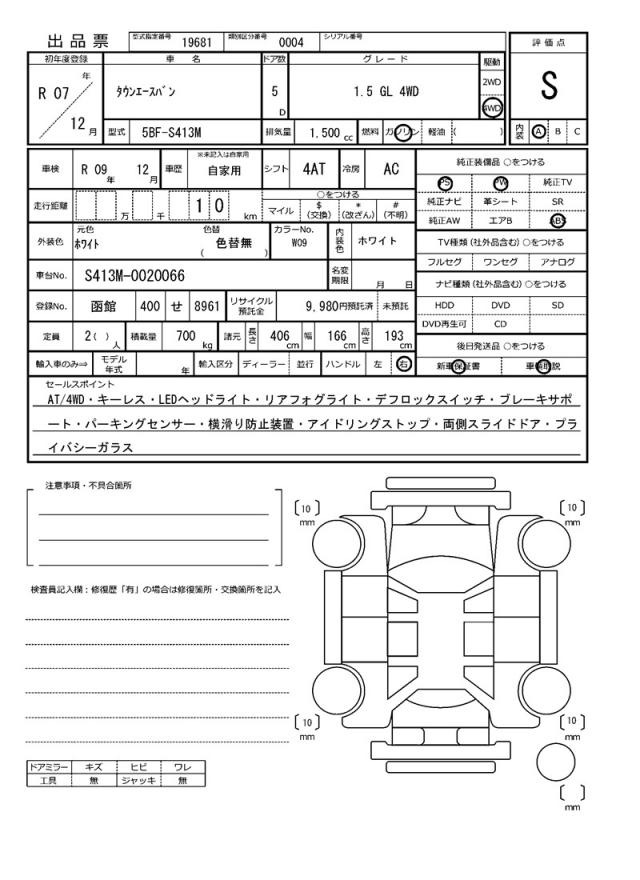 出品票 型式指定番号 19681 類別区分番号 0004 シリアル番号
評価点
S
内装 A B C
初年度登録 車名 ドア数 グレード 駆動
R 07 年 12 月
タウンエースバン 5 D 1.5 GL 4WD 2WD 4WD
型式 5BF-S413M 排気量 1.500 cc 燃料 ガソリン 軽油 ( )
車検 R 09 年 12 月 車歴 ※未記入は自家用 自家用 シフト 4AT 冷房 AC
走行距離 万 千 1 0 km ○をつける
マイル $ (交換) * (改ざん) # (不明)
外装色 元色 ホワイト 色替 色替無 ( ) カラーNo. W09 内装色 ホワイト
車台No. S413M-0020066 名変期限 月 日
登録No. 函館 400 せ 8961 リサイクル預託金 9,980円預託済 未預託
定員 2( ) 人 積載量 700 kg 諸元 長さ 406 cm 幅 166 cm 高さ 193 cm
輸入車のみ⇒ モデル年式 年 輸入区分 ディーラー 並行 ハンドル 左 右
純正装備品 ○をつける
PS PW 純正TV
純正ナビ 革シート SR
純正AW エアB ABS
TV種類 (社外品含む) ○をつける
フルセグ ワンセグ アナログ
ナビ種類 (社外品含む) ○をつける
HDD DVD SD
DVD再生可 CD
後日発送品 ○をつける
新車保証書 車輌取説
セールスポイント
AT/4WD・キーレス・LEDヘッドライト・リアフォグライト・デフロックスイッチ・ブレーキサポ
ート・パーキングセンサー・横滑り防止装置・アイドリングストップ・両側スライドドア・プラ
イバシーガラス
注意事項・不具合箇所
検査員記入欄：修復歴「有」の場合は修復箇所・交換箇所を記入
ドアミラー キズ ヒビ ワレ
工具 無 ジャッキ 無
[10] mm
[10] mm
[10] mm
[10] mm
[ ] mm